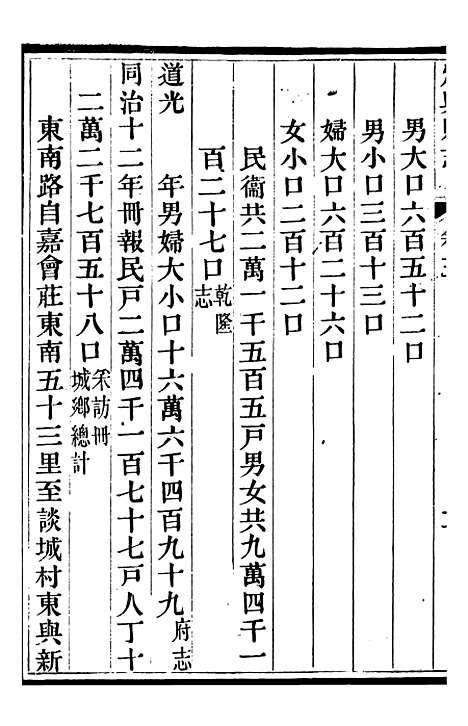 男大口六百五十二口
男小口三百十三口
婦大口六百二十六口
女小口二百十二口
民衞共二萬一千五百五戸男女共九萬四千一
百二十七口乾隆志
道光　　年男婦大小口十六萬六千四百九十九府志
同治十二年冊報民戸二萬四千一百七十七戸人丁十
二萬二千七百五十八口采訪冊城鄉總計
東南路自嘉會莊東南五十三里至談城村東與新